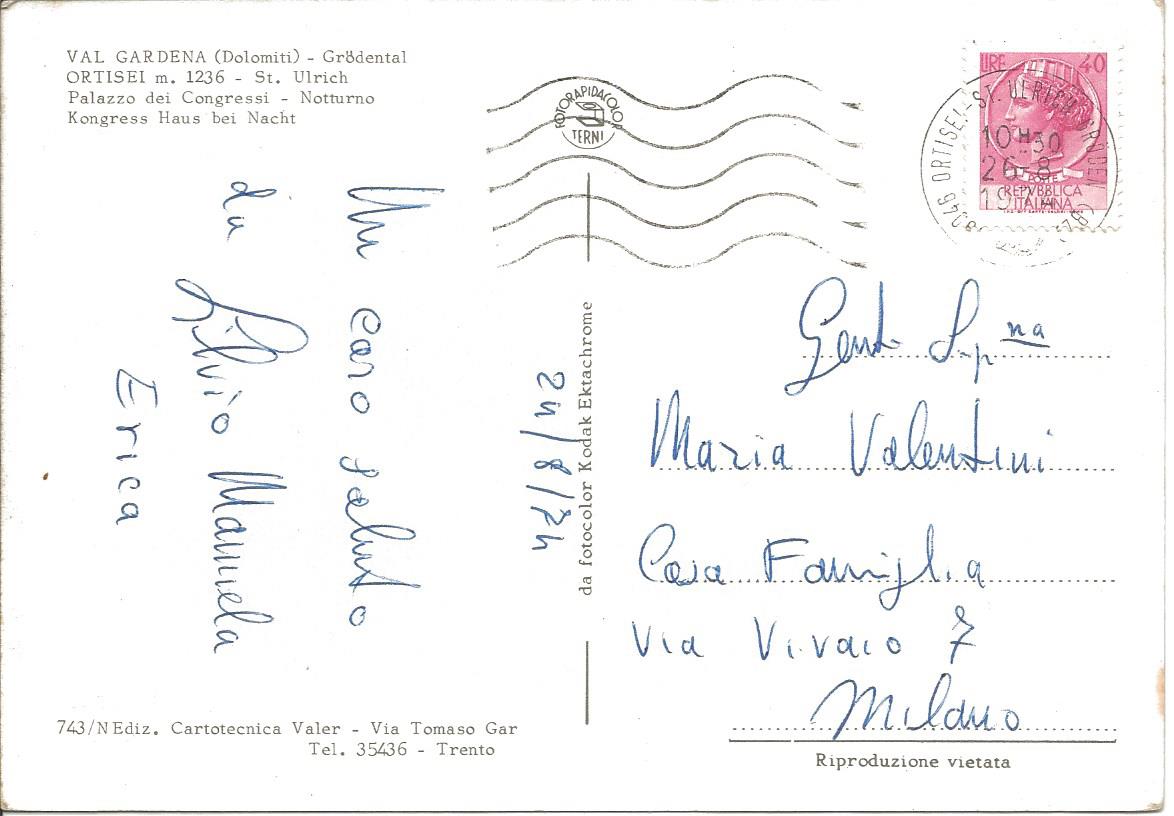 VAL GARDENA (Dolomiti) - Grödental
ORTISEI m. 1236 - St. Ulrich
Palazzo dei Congressi - Notturno
Kongress Haus bei Nacht
FOTORAPIDACOLOR
TERNI
LIRE 40
POSTE
REPVBBLICA
ITALIANA
ORTISEI - ST. ULRICH
10 H 30
26-8
Un caro saluto
di Silvio Manuela
Erica
24/8/74
da fotocolor Kodak Ektachrome
Gent. S.na
Maria Valentini
Casa Famiglia
Via Vivaio 7
Milano
743/N Ediz. Cartotecnica Valer - Via Tomaso Gar
Tel. 35436 - Trento
Riproduzione vietata